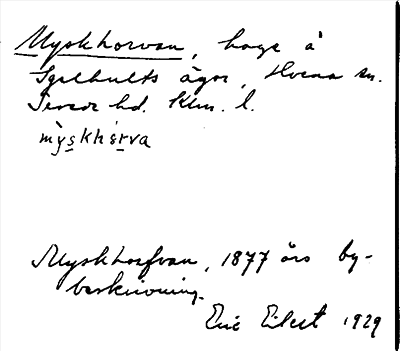 Myskhorvan, hage å
Igelhults ägor, Hvena sn.
Sevede hd. Klm. l.
myskhorva
Myskhorfvan, 1877 års by-
beskrivning.
Eric Elert 1929